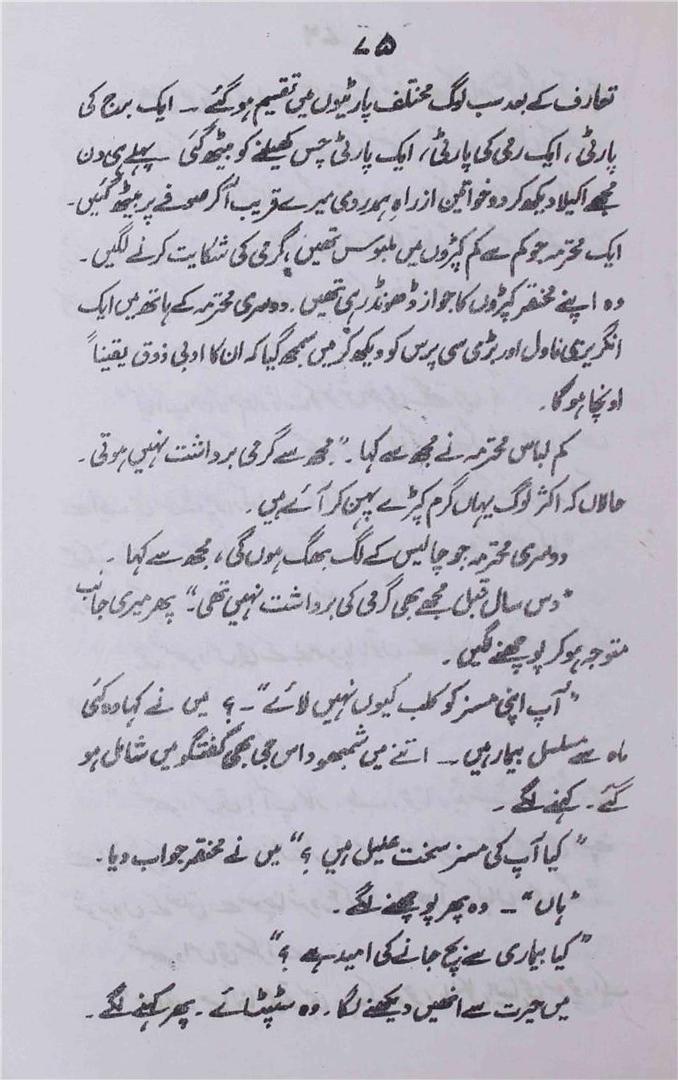 ۷۵
تعارف کے بعد سب لوگ مختلف پارٹیوں میں تقسیم ہو گئے ۔ ایک برج کی
پارٹی ، ایک رمی کی پارٹی ، ایک پارٹی چس کھیلنے کو بیٹھ گئی ۔ پہلے ہی دن
مجھے اکیلا دیکھ کر دو خواتین از راہِ ہمدردی میرے قریب آ کر صوفے پر بیٹھ گئیں ۔
ایک محترمہ جو کم سے کم کپڑوں میں ملبوس تھیں ، گرمی کی شکایت کرنے لگیں ۔
وہ اپنے مختصر کپڑوں کا جواز ڈھونڈ رہی تھیں ۔ دوسری محترمہ کے ہاتھ میں ایک
انگریزی ناول اور بڑی سی پرس کو دیکھ کر میں سمجھ گیا کہ ان کا ادبی ذوق یقیناً
اونچا ہوگا ۔
کم لباس محترمہ نے مجھ سے کہا ۔ "مجھ سے گرمی برداشت نہیں ہوتی ۔
حالاں کہ اکثر لوگ یہاں گرم کپڑے پہن کر آئے ہیں ۔
دوسری محترمہ جو چالیس کے لگ بھگ ہوں گی ، مجھ سے کہا ۔
"دس سال قبل مجھے بھی گرمی کی برداشت نہیں تھی ۔" پھر میری جانب
متوجہ ہو کر پوچھنے لگیں ۔
"آپ اپنی مسز کو کلب کیوں نہیں لائے" ۔ ؟ میں نے کہا وہ کئی
ماہ سے مسلسل بیمار ہیں ۔ اتنے میں شمبھو داس جی بھی گفتگو میں شامل ہو
گئے ۔ کہنے لگے ۔
"کیا آپ کی مسز سخت علیل ہیں ؟" میں نے مختصر جواب دیا ۔
"ہاں" ۔ وہ پھر پوچھنے لگے ۔
"کیا بیماری سے بچ جانے کی امید ہے ؟"
میں حیرت سے انھیں دیکھنے لگا ۔ وہ سٹپٹائے ۔ پھر کہنے لگے ۔